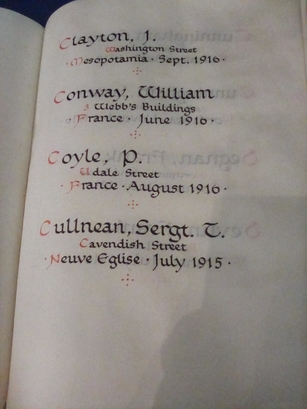 Clayton, J.
Washington Street
· Mesopotamia · Sept. 1916 ·
Conway, William
3 Webb's Buildings
· France · June 1916 ·
Coyle, P.
Udale Street
· France · August 1916 ·
Cullnean, Sergt. T.
Cavendish Street
· Neuve Eglise · July 1915 ·